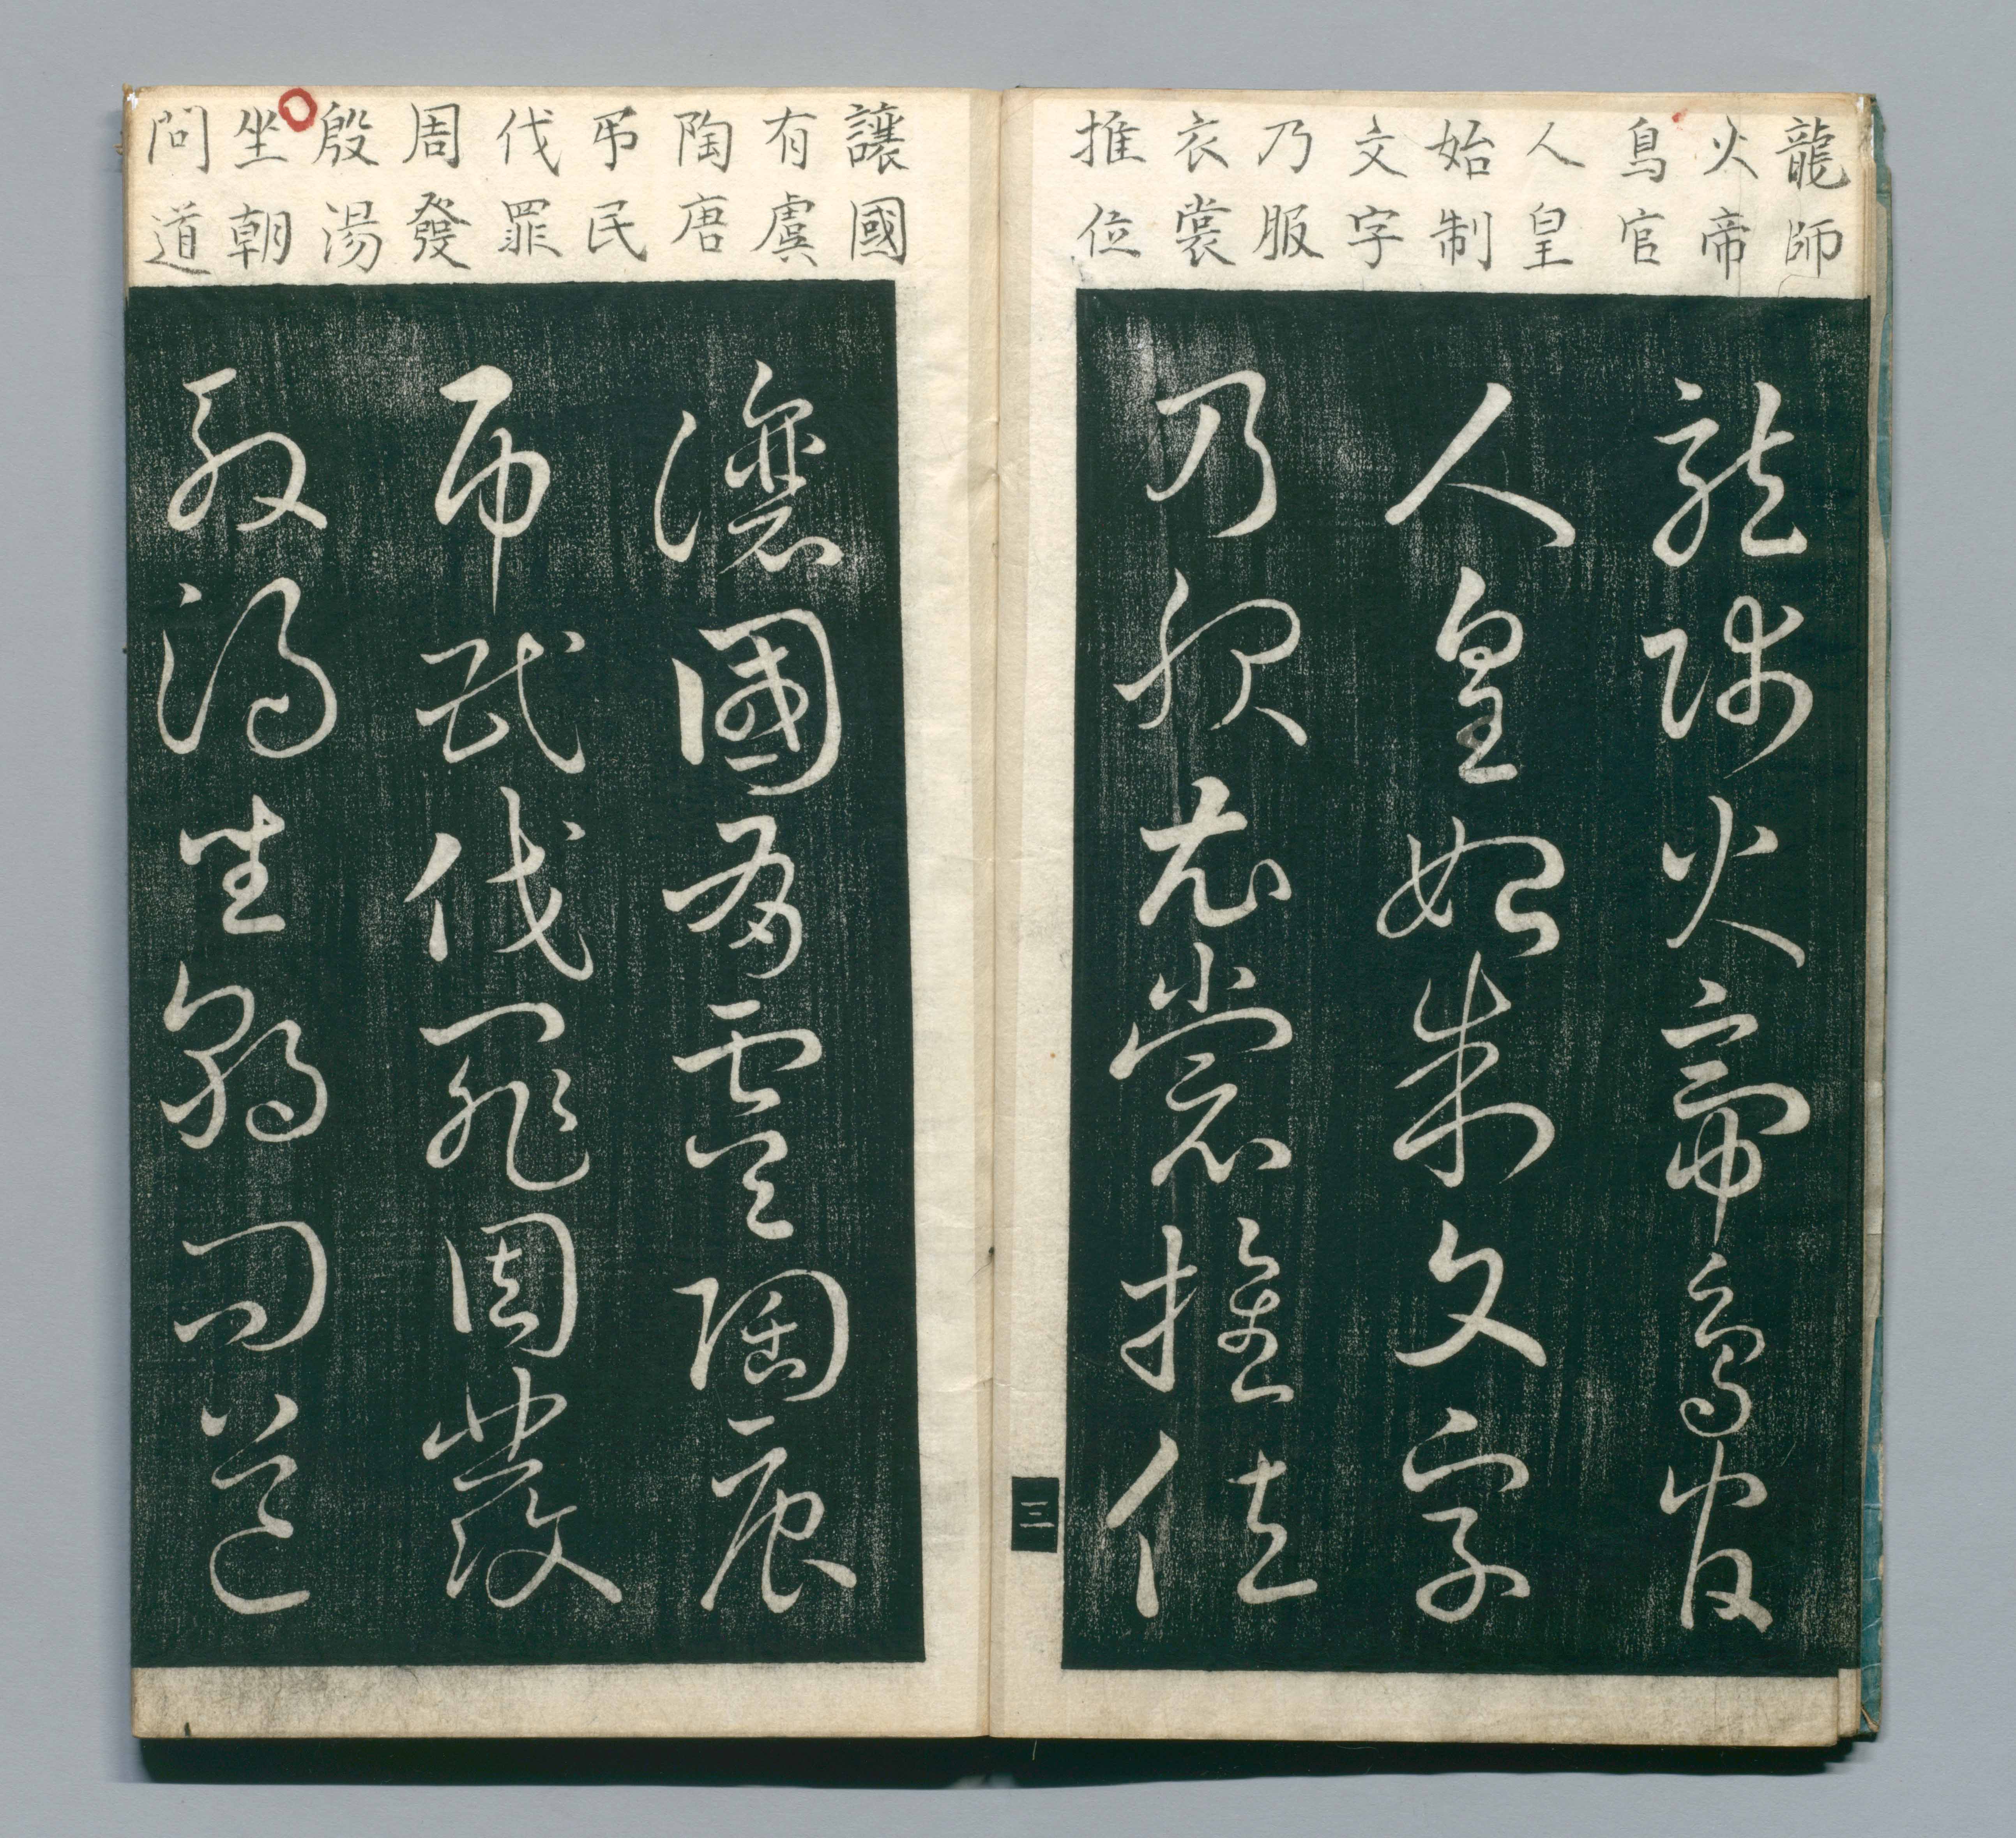 龍師
火帝
鳥官
人皇
始制
文字
乃服
衣裳
推位
龍師火帝鳥官
人皇始制文字
乃服衣裳推位
三
讓國
有虞
陶唐
弔民
伐罪
周發
殷湯
坐朝
問道
讓國有虞陶唐
弔民伐罪周發
殷湯坐朝問道